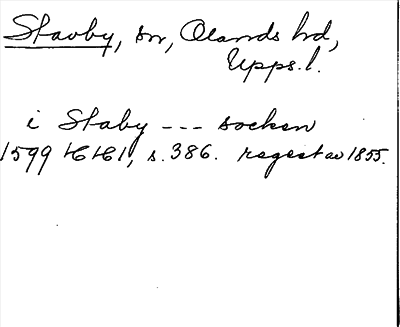 Stavby, sn, Olands hd,
Upps. l.
i Staby --- socken
1599 s. 386. regest av 1855.